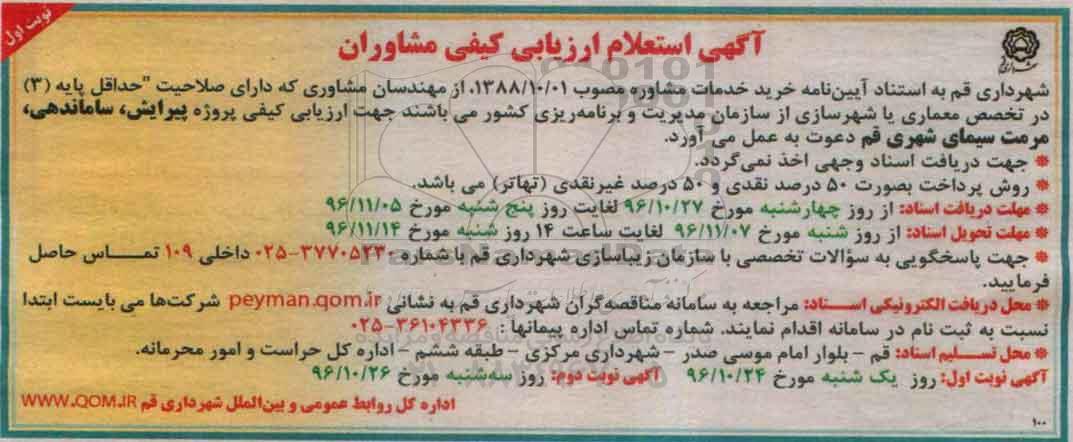 نوبت اول
آگهی استعلام ارزیابی کیفی مشاوران
شهرداری قم
شهرداری قم به استناد آیین‌نامه خرید خدمات مشاوره مصوب ۱۳۸۸/۱۰/۰۱، از مهندسان مشاوری که دارای صلاحیت "حداقل پایه (۳)
در تخصص معماری یا شهرسازی از سازمان مدیریت و برنامه‌ریزی کشور می باشند جهت ارزیابی کیفی پروژه پیرایش، ساماندهی،
مرمت سیمای شهری قم دعوت به عمل می آورد.
* جهت دریافت اسناد وجهی اخذ نمی‌گردد.
* روش پرداخت بصورت ۵۰ درصد نقدی و ۵۰ درصد غیرنقدی (تهاتر) می باشد.
* مهلت دریافت اسناد: از روز چهارشنبه مورخ ۹۶/۱۰/۲۷ لغایت روز پنج شنبه مورخ ۹۶/۱۱/۰۵
* مهلت تحویل اسناد: از روز شنبه مورخ ۹۶/۱۱/۰۷ لغایت ساعت ۱۴ روز شنبه مورخ ۹۶/۱۱/۱۴
* جهت پاسخگویی به سؤالات تخصصی با سازمان زیباسازی شهرداری قم با شماره ۳۷۷۰۵۲۳۰-۰۲۵ داخلی ۱۰۹ تمــاس حاصل
فرمایید.
* محل دریافت الکترونیکی اســناد: مراجعه به سامانه مناقصه‌گران شهرداری قم به نشانی peyman.qom.ir شرکت‌ها می بایست ابتدا
نسبت به ثبت نام در سامانه اقدام نمایند. شماره تماس اداره پیمانها : ۳۶۱۰۴۳۳۶-۰۲۵
* محل تسـلیم اسناد: قم - بلوار امام موسی صدر - شهرداری مرکزی - طبقه ششم - اداره کل حراست و امور محرمانه.
آگهی نوبت اول: روز یک شنبه مورخ ۹۶/۱۰/۲۴ آگهی نوبت دوم: روز سه‌شنبه مورخ ۹۶/۱۰/۲۶
اداره کل روابط عمومی و بین‌الملل شهرداری قم WWW.QOM.IR
۱۰۰